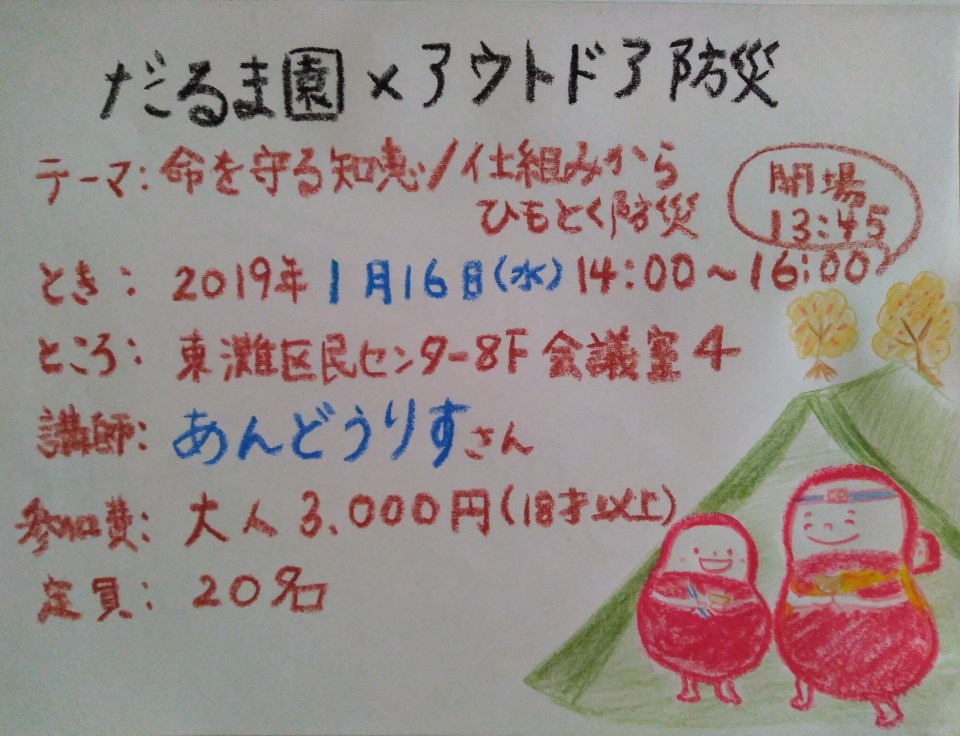 だるま園×アウトドア防災
テーマ:命を守る知恵/仕組みから
ひもとく防災
開場
13:45
とき: 2019年1月16日(水)14:00~16:00
ところ: 東灘区民センター8F 会議室4
講師: あんどうりすさん
参加費: 大人3.000円(18才以上)
定員: 20名